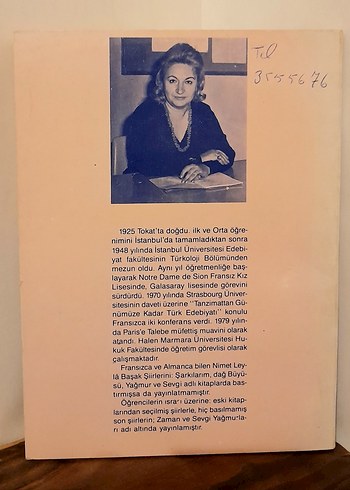 Tel
3555676
1925 Tokat'ta doğdu. ilk ve Orta öğre-
nimini İstanbul'da tamamladıktan sonra
1948 yılında İstanbul Üniversitesi Edebi-
yat fakültesinin Türkoloji Bölümünden
mezun oldu. Aynı yıl öğretmenliğe baş-
layarak Notre Dame de Sion Fransız Kız
Lisesinde, Galasaray lisesinde görevini
sürdürdü. 1970 yılında Strasbourg Üniver-
sitesinin daveti üzerine "Tanzimattan Gü-
nümüze Kadar Türk Edebiyatı" konulu
Fransızca iki konferans verdi. 1979 yılın-
da Paris'e Talebe müfettiş muavini olarak
atandı. Halen Marmara Üniversitesi Hu-
kuk Fakültesinde öğretim görevlisi olarak
çalışmaktadır.
Fransızca ve Almanca bilen Nimet Ley-
lâ Başak Şiirlerini: Şarkılarım, dağ Büyü-
sü, Yağmur ve Sevgi adlı kitaplarda bas-
tırmışsa da yayınlatmamıştır.
Öğrencilerin ısrarı üzerine: eski kitap-
larından seçilmiş şiirlerle, hiç basılmamış
son şiirlerin; Zaman ve Sevgi Yağmurla-
rı adı altında yayınlamıştır.